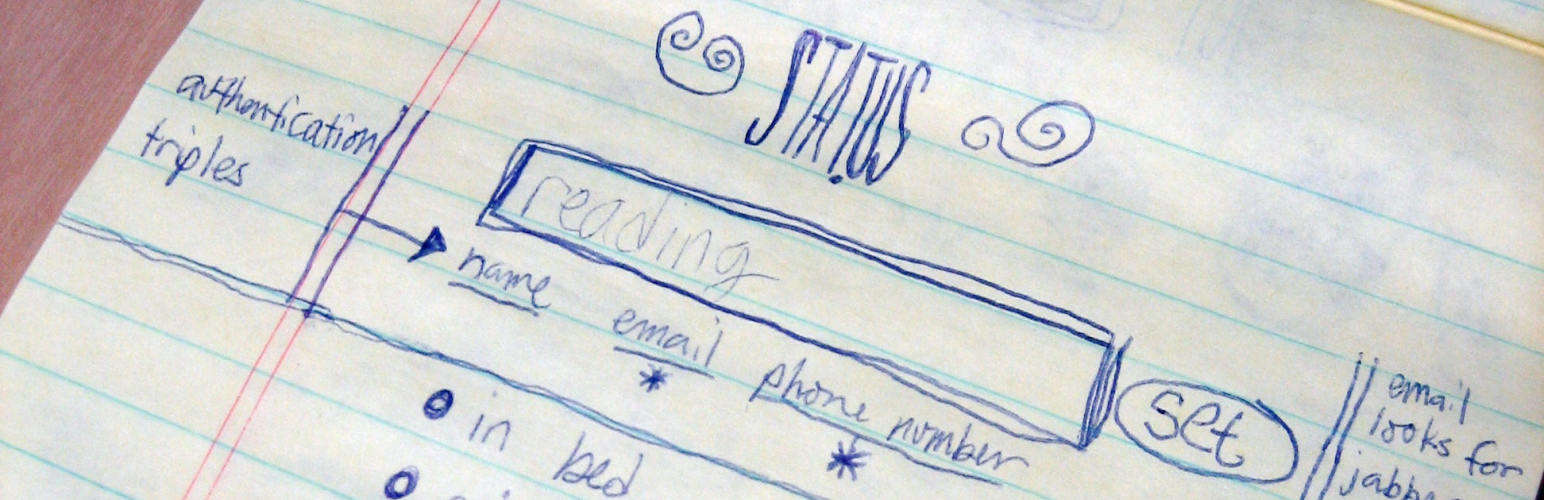 STATUS
authentication
triples
reading
name email phone number
* *
set
email
looks for
in bed